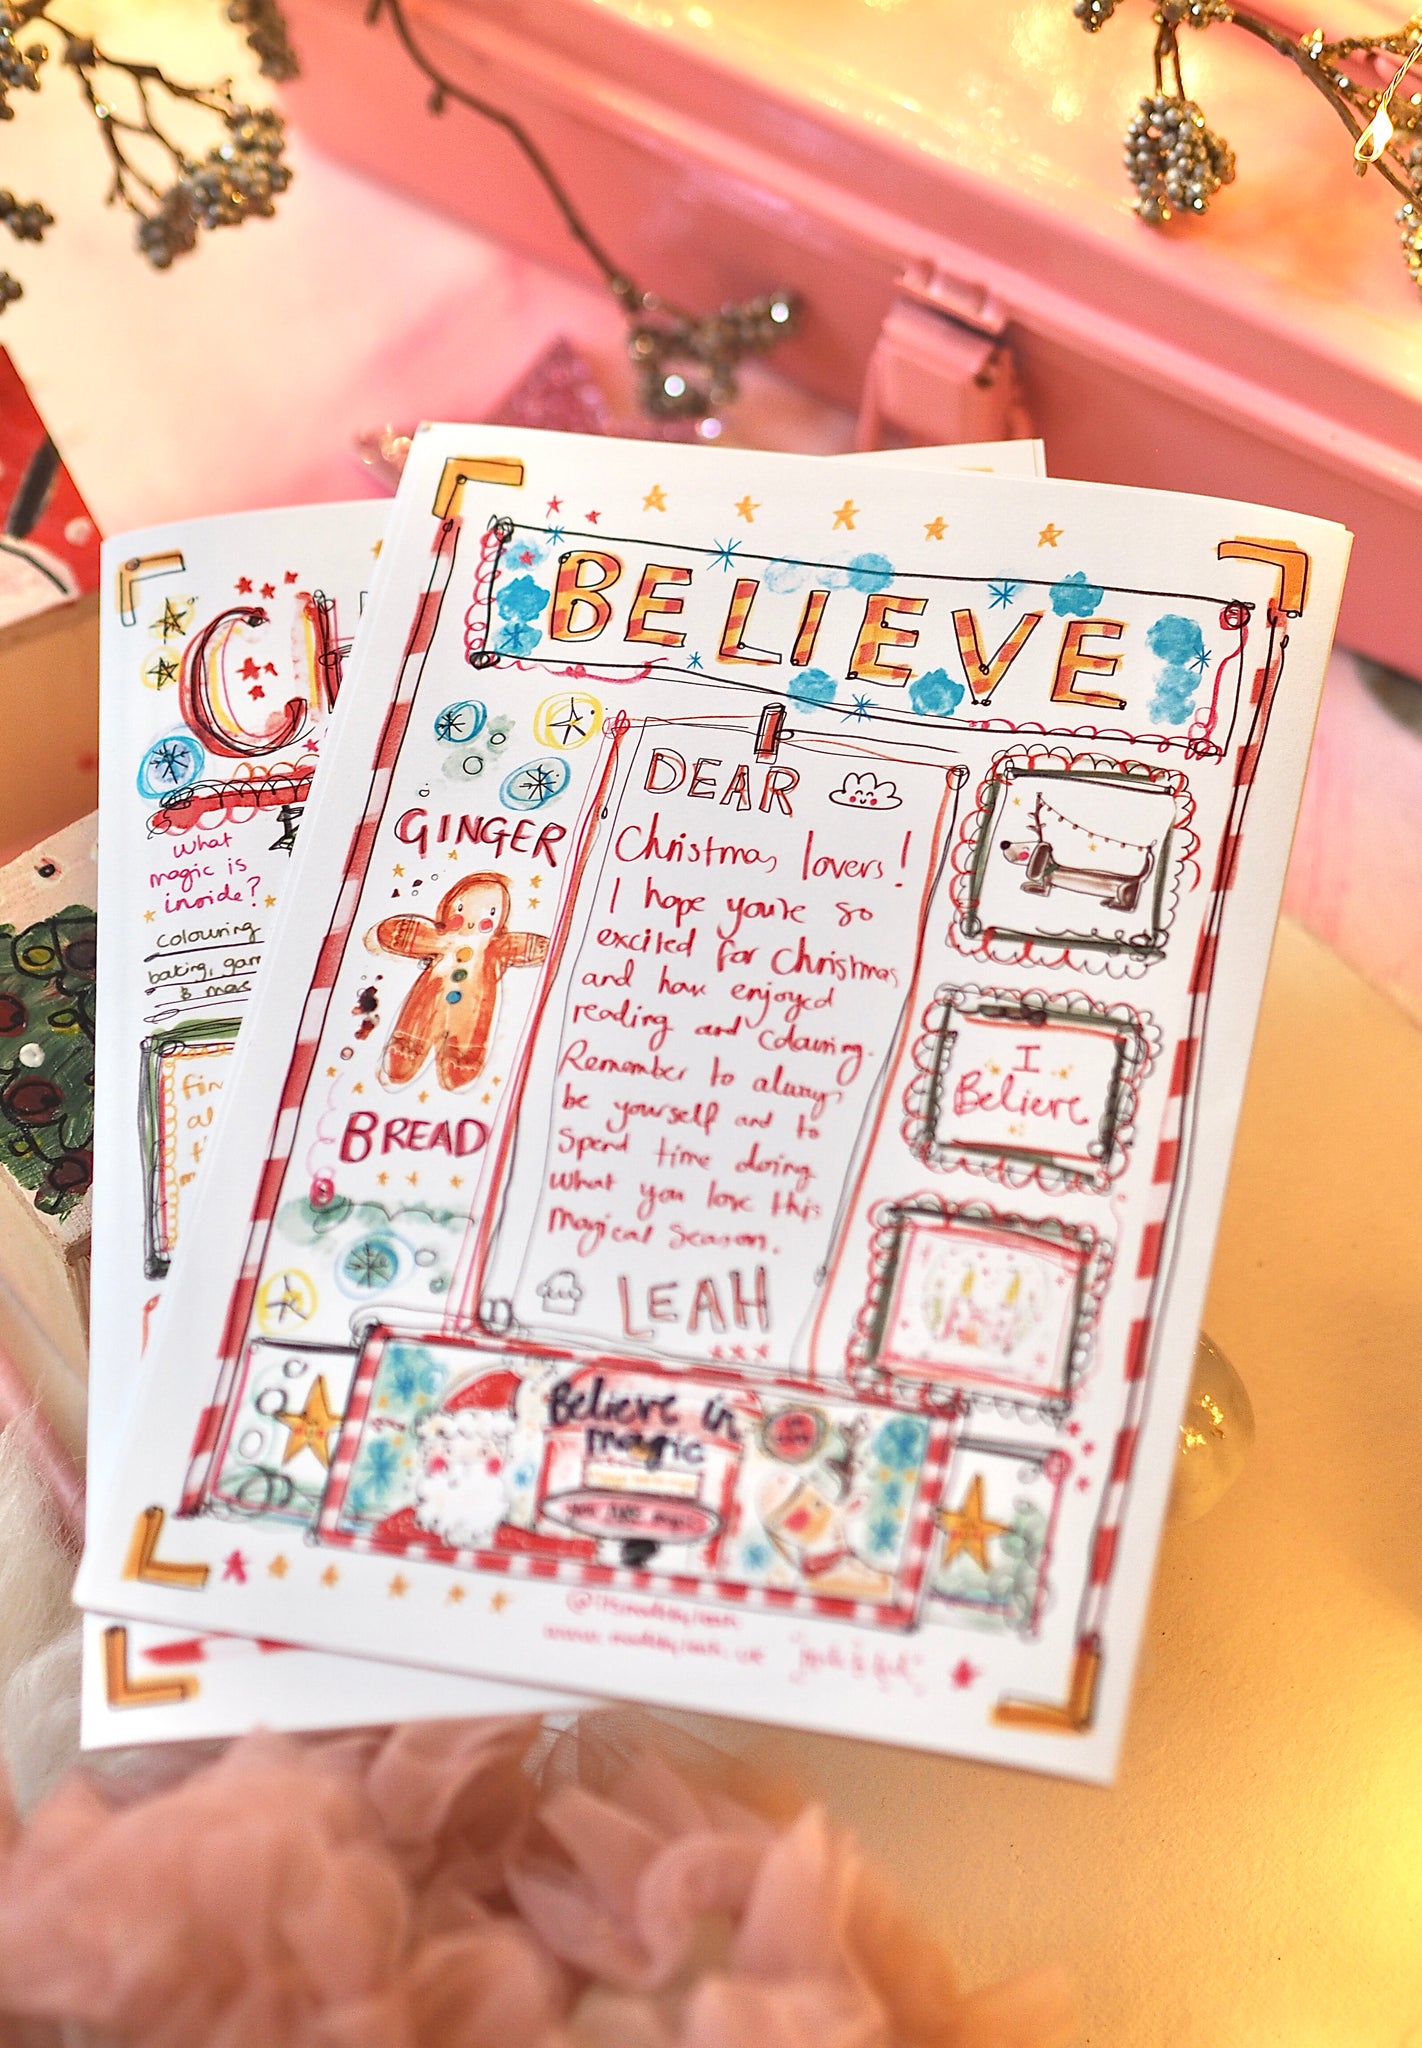 BELIEVE
GINGER
BREAD
DEAR
Christmas lovers!
I hope you're so
excited for Christmas
and have enjoyed
reading and colouring.
Remember to always
be yourself and to
spend time doing
what you love this
magical season.
LEAH
xxx
I
Believe
Believe in
magic
What
magic is
inside?
colouring
baking,
& more